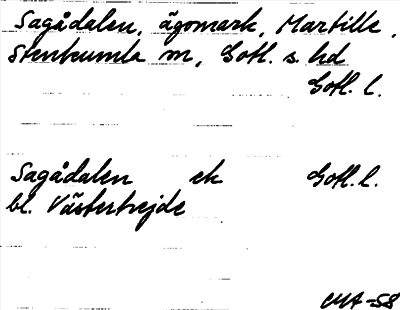 Sagådalen, ägomark, Martille,
Stenkumla sn, Gotl. s. hd
Gotl. l.
Sagådalen ek Gotl. l.
bl. Västerhejde